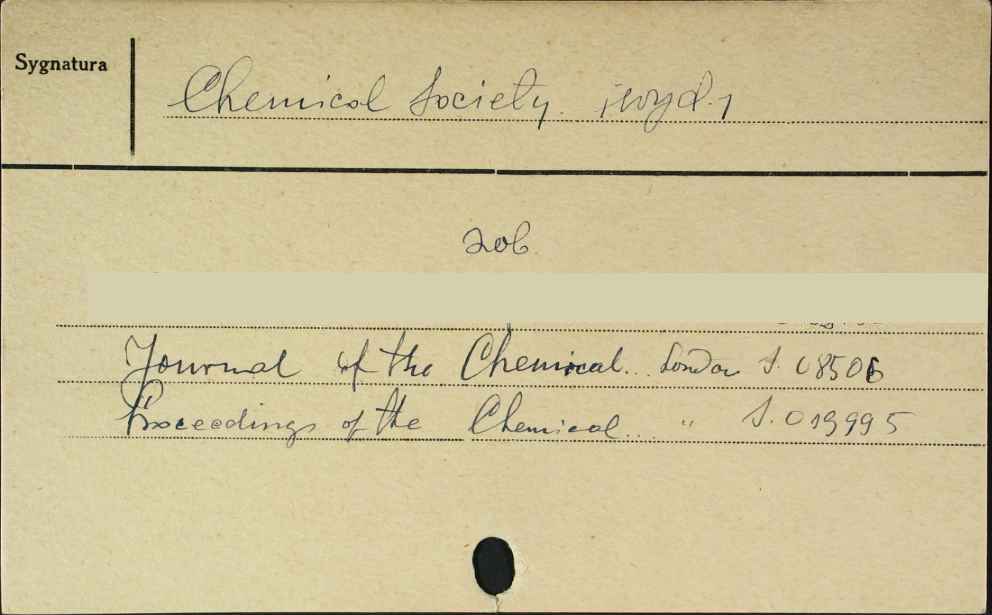 Sygnatura
Chemical Society. /wyd./
zob.
Journal of the Chemical... London S. 08506
Proceedings of the Chemical... " S. 013995